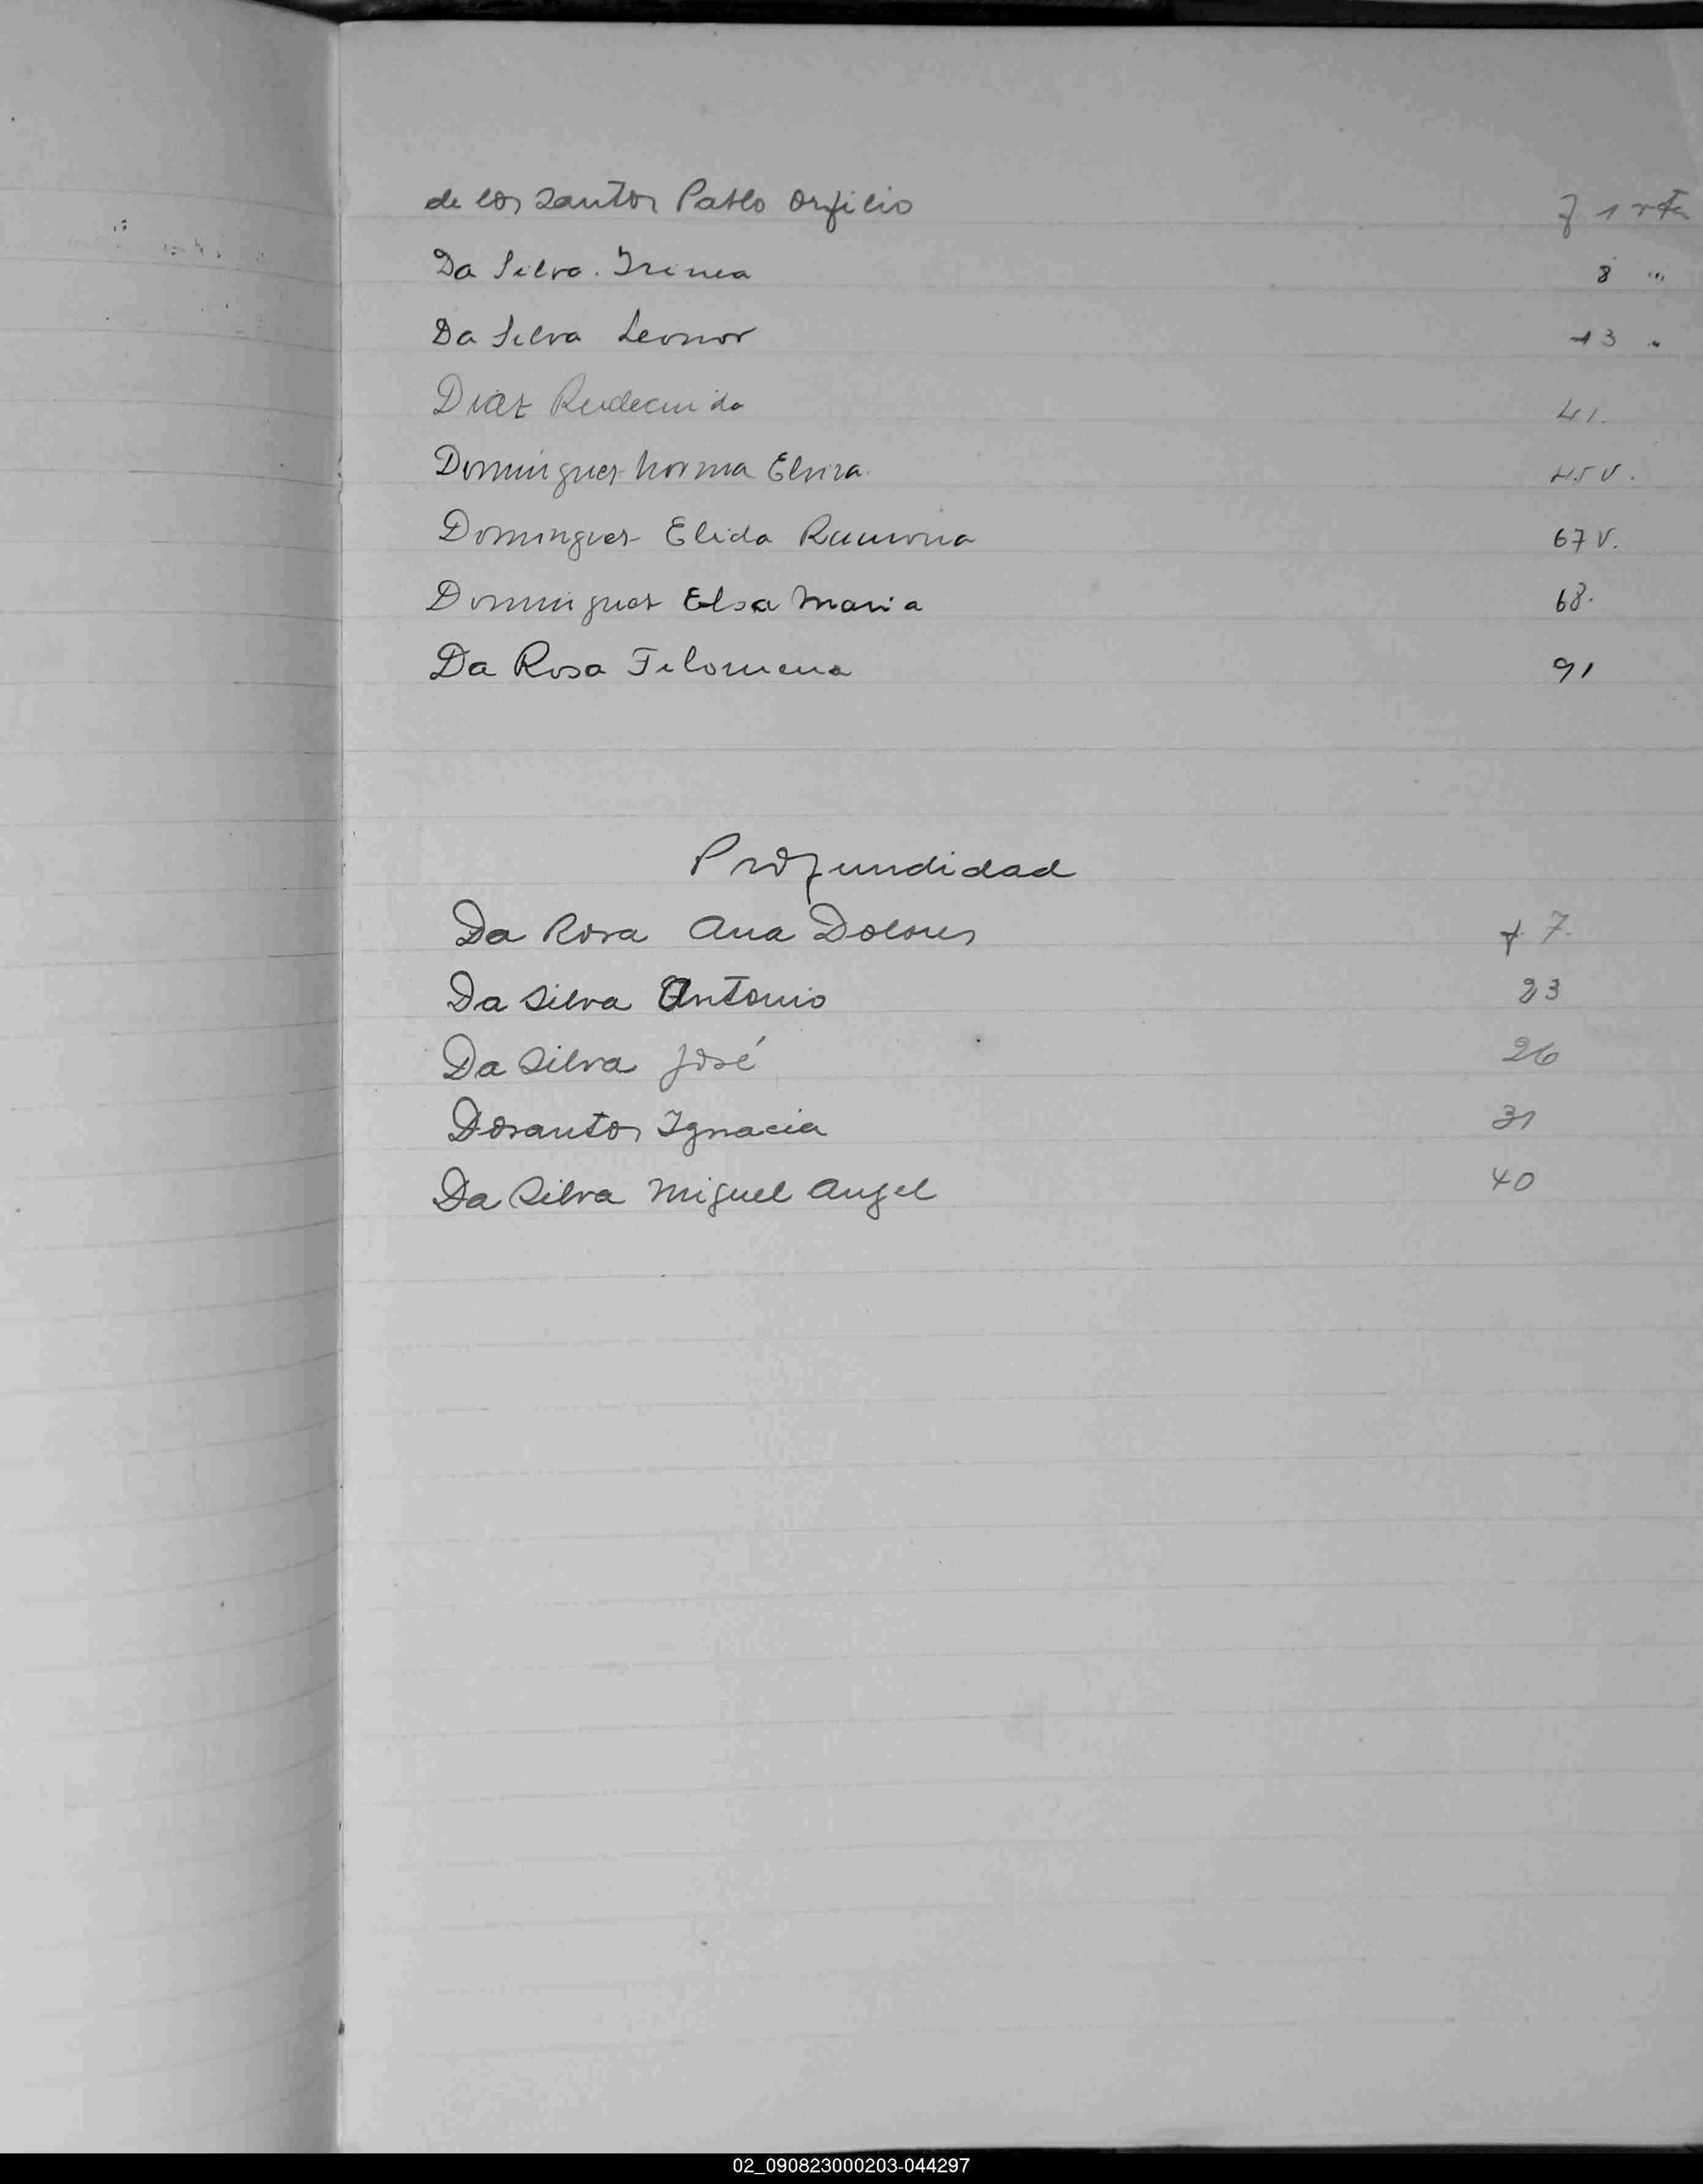 de los Santos Pablo Orfilio f 1 vta
Da Silva. Irinea 8 "
Da Silva Leonor 13 "
Diaz Rudecinda 41.
Dominguez Norma Elvira. 45 v.
Dominguez Elida Ramona 67 v.
Dominguez Elsa Maria 68.
Da Rosa Filomena 91
Profundidad
Da Rosa Ana Dolores f. 7.
Da Silva Antonio 23
Da Silva José 26
Dosantos Ignacia 31
Da Silva Miguel Angel 40
02_090823000203-044297